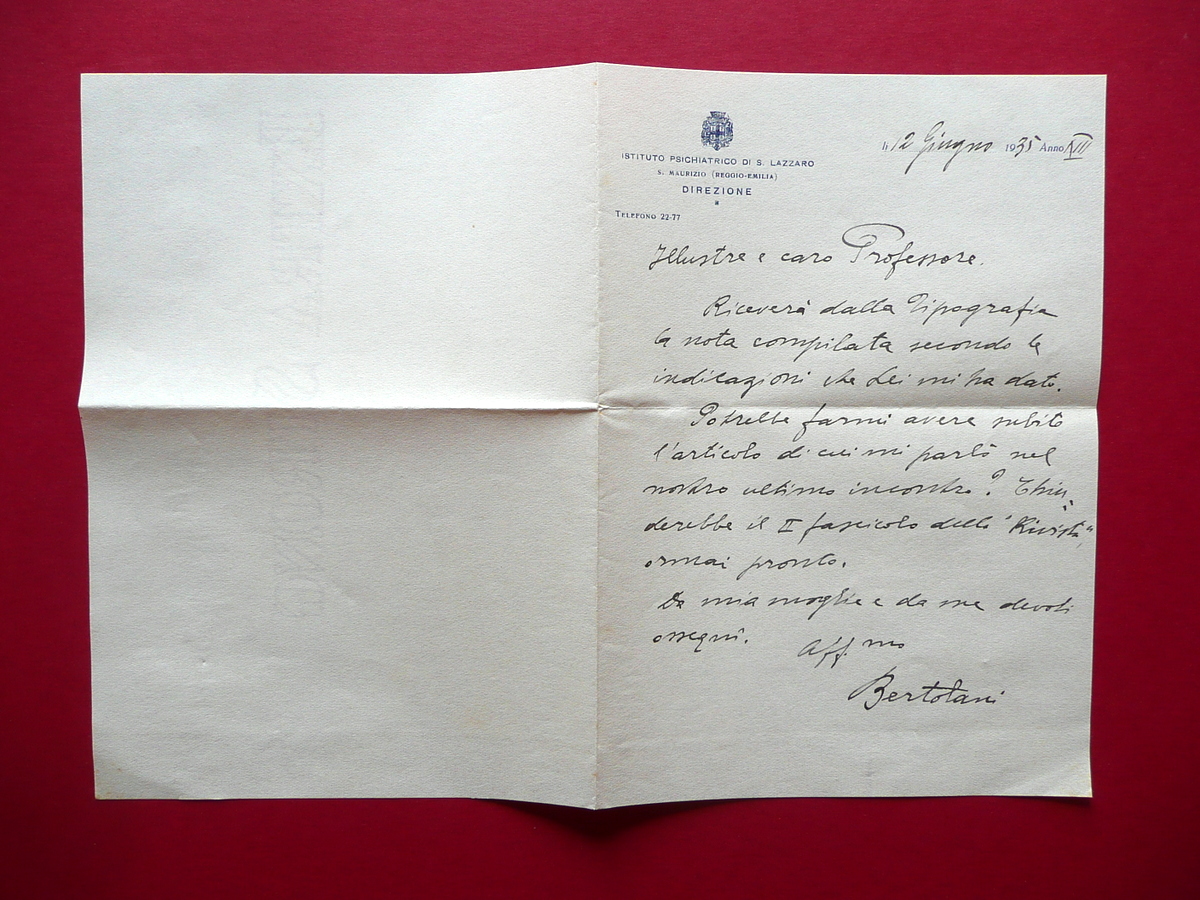 ISTITUTO PSICHIATRICO DI S. LAZZARO
S. MAURIZIO (REGGIO-EMILIA)
DIREZIONE
TELEFONO 22-77
lì 12 Giugno 1935 Anno XIII
Illustre e caro Professore.
Riceverà dalla Tipografia
la nota compilata secondo le
indicazioni che Lei mi ha dato.
Potrebbe farmi avere subito
l'articolo di cui mi parlò nel
nostro ultimo incontro? Chiu-
derebbe il II fascicolo della "Rivista",
ormai pronto.
Da mia moglie e da me devoti
ossequi.
Aff.mo
Bertolani